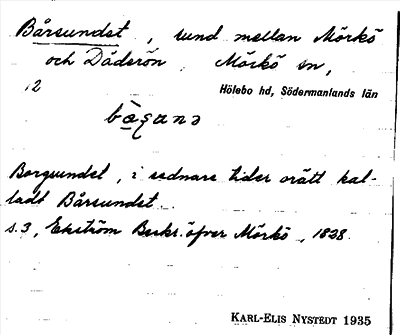 Bårsundet, sund mellan Mörkö
och Dåderön. Mörkö sn,
12 Hölebo hd, Södermanlands län
Borgsundet, i sednare tider orätt kal-
ladt Bårsundet.
s. 3, Ekström Beskr. öfver Mörkö, 1828.
KARL-ELIS NYSTEDT 1935